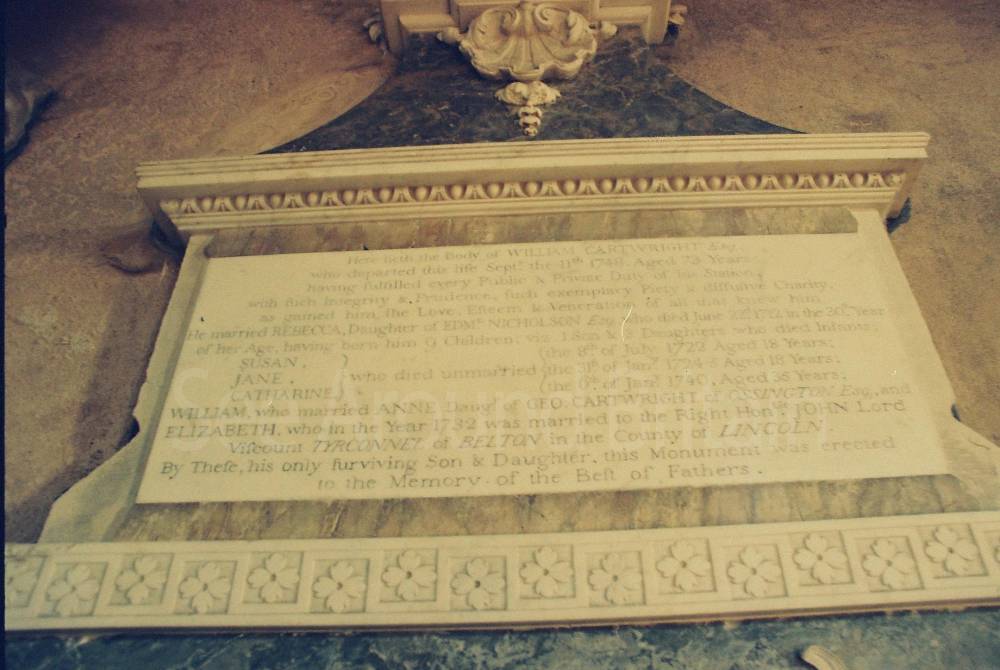 Here lieth the Body of WILLIAM CARTWRIGHT Esq.
who departed this life Sept. the 11th 1748 Aged 73 Years
having fulfilled every Public & Private Duty of his Station,
with such Integrity & Prudence, such exemplary Piety & diffusive Charity,
as gained him the Love, Esteem & Veneration of all that knew him
He married REBECCA, Daughter of EDMd NICHOLSON Esq. who died June 1712 in the Year
of her Age, having born him 9 Children, viz. 1 Son & 8 Daughters who died Infants;
SUSAN, the 8th of July 1722 Aged 18 Years;
JANE, who died unmarried the 31st of Jany Aged 18 Years;
CATHARINE the of Jany 1740, Aged 36 Years;
WILLIAM, who married ANNE Daugr of GEO: CARTWRIGHT of OSSINGTON Esq., and
ELIZABETH, who in the Year 1732 was married to the Right Honble JOHN Lord
Viscount TYRCONNEL of BELTON in the County of LINCOLN.
By These, his only surviving Son & Daughter, this Monument was erected
to the Memory of the Best of Fathers.